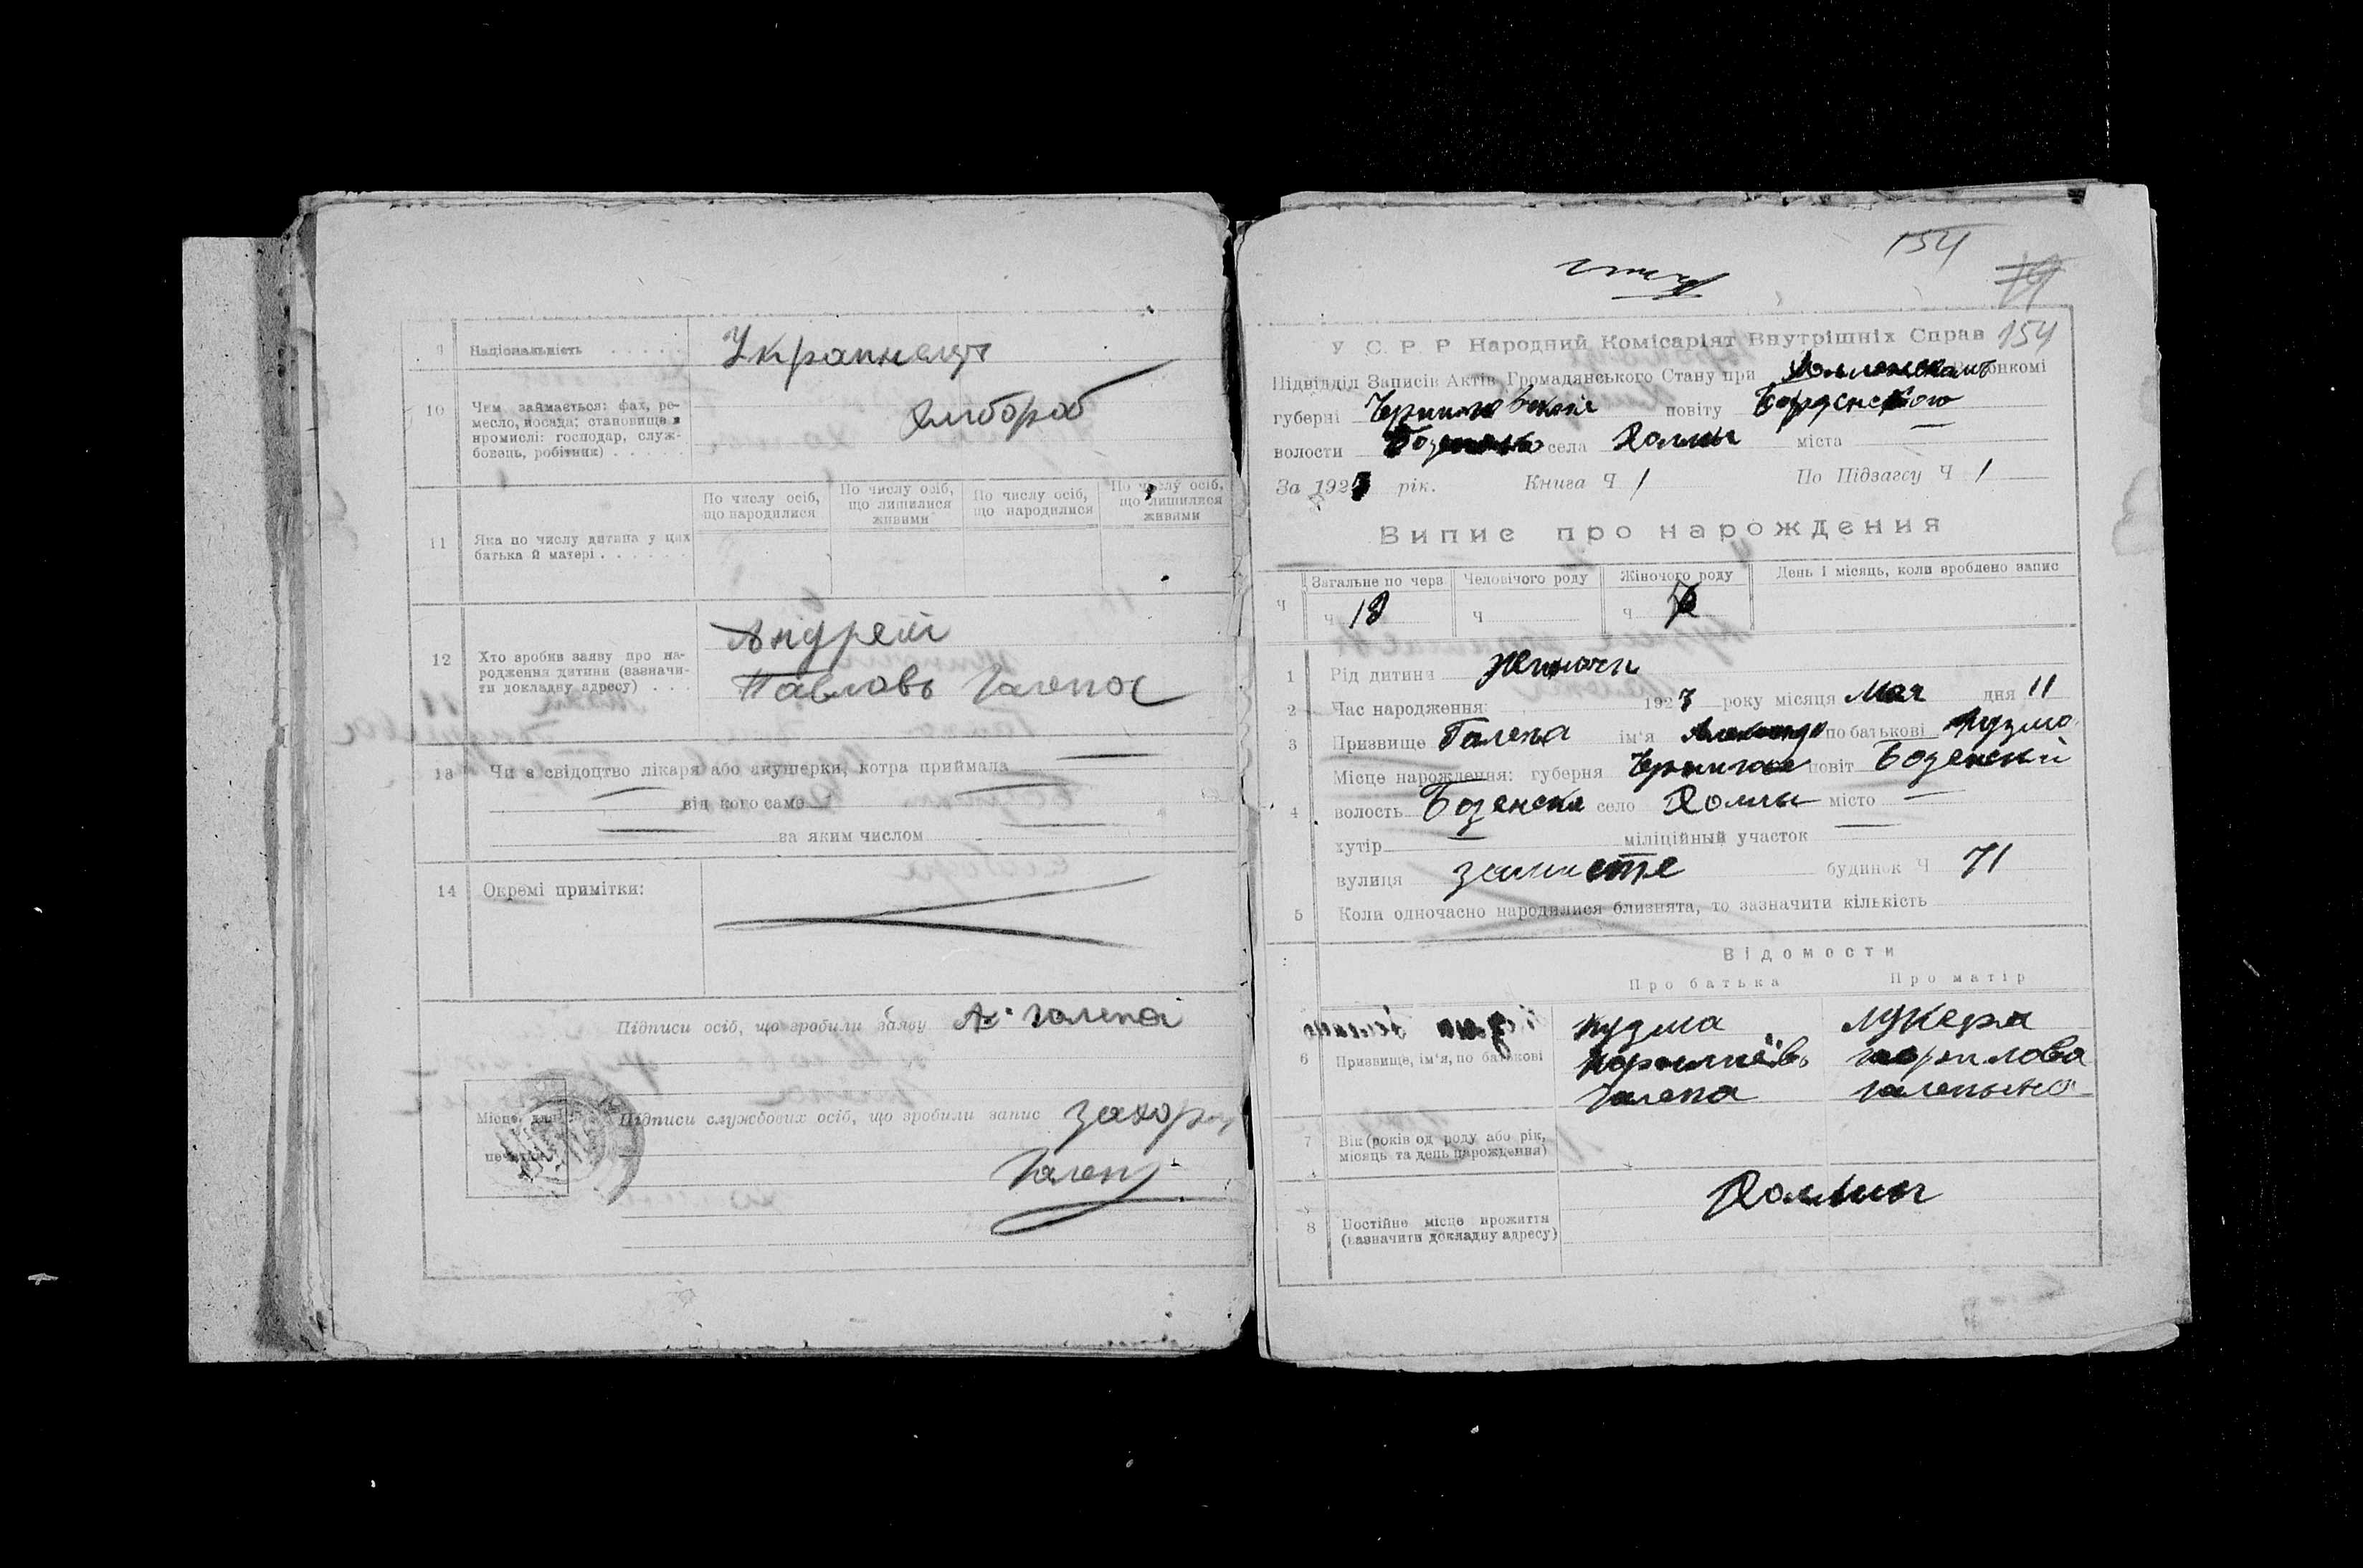 9 Національність . . . . .
Украинець
10 Чим займається: фах, ре-
месло, посада; становище в
промислі: господар, служ-
бовець, робітник) . . . . .
Хлибороб
По числу осіб, що народилися
По числу осіб, що лишилися живими
По числу осіб, що народилися
По числу осіб, що лишилися живими
11 Яка по числу дитина у цих
батька й матері . . . . . .
12 Хто зробив заяву про на-
родження дитини (зазначи-
ти докладну адресу) . . .
Андрей
Павловъ Галепа
13 Чи є свідоцтво лікаря або акушерки, котра приймала
від кого саме
за яким числом
14 Окремі примітки:
Підписи осіб, що зробили заяву А. Галепа
Місце для печатки
Підписи службових осіб, що зробили запис
Галеп
154
79
154
У С. Р Р Народний Комісаріят Внутрішніх Справ
Підвідділ Записів Актів Громадянського Стану при
губерні повіту
волости села Холмы міста —
За 1923 рік. Книга Ч 1 По Підзагсу Ч 1
Випис про нарождения
Загальне по черз Человічого роду Жіночого роду День і місяць, коли зроблено запис
Ч ч 18 ч ч
1 Рід дитини Жиночи
2 Час народження: 1923 року місяця Мая дня 11
3 Призвище Галепа ім'я по батькові Кузмо
Місце нарождення: губерня повіт Бозенскій
4 волость Бозенска село Холмы місто —
хутір — міліційный участок —
вулиця будинок Ч 71
5 Коли одночасно народилися близнята, то зазначити кількість
Відомости
Про батька Про матір
6 Призвище, ім'я, по батькові
Кузма Лукера
Галепа
7 Вік (років од роду або рік,
місяць та день нарождення)
8 Постійне місце прожиття
(вазначити докладну адресу)
Холмы